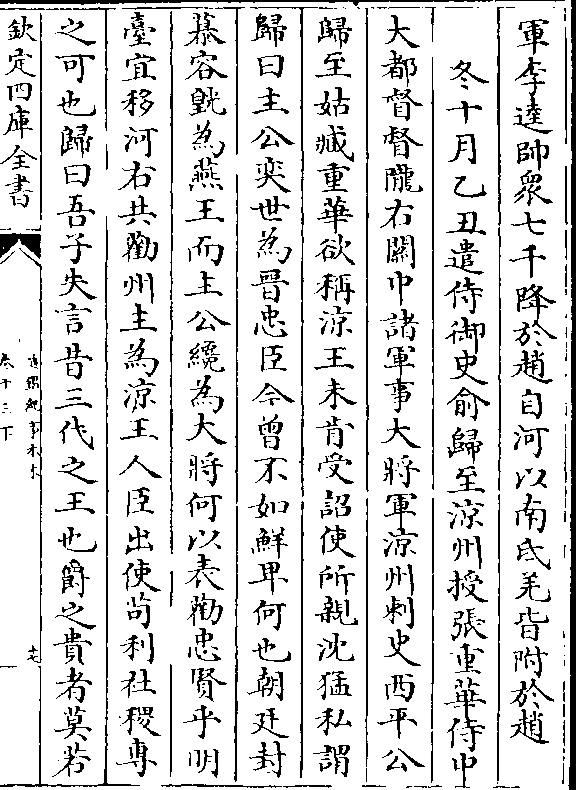 軍李逵帥衆七千降於趙自河以南氐羌皆附於趙
冬十月乙丑遣侍御史俞歸至涼州授張重華侍中
大都督督隴右關中諸軍事大將軍涼州刺史西平公
歸至姑臧重華欲稱涼王未肯受詔使所親沈猛私謂
歸曰主公奕世為晉忠臣今曾不如鮮卑何也朝廷封
慕容皝為燕王而主公纔為大將何以表勸忠賢乎明
臺宜移河右共勸州主為涼王人臣出使苟利社稷專
之可也歸曰吾子失言昔三代之王也爵之貴者莫若
欽定四庫全書
通鑑紀事本末
卷十三下